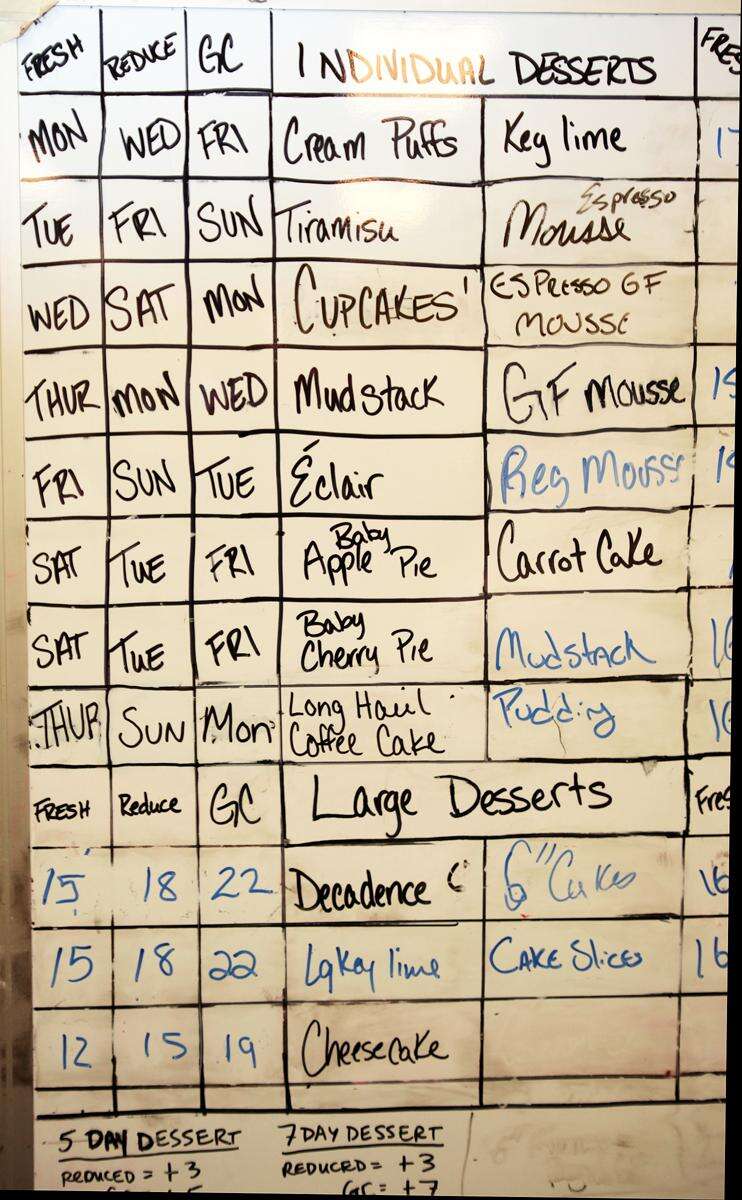 FRESH REDUCE GC INDIVIDUAL DESSERTS
MON WED FRI Cream Puffs Key lime
TUE FRI SUN Tiramisu Espresso Mousse
WED SAT MON CUPCAKES ESPRESSO GF
MOUSSE
THUR MON WED Mudstack GF Mousse
FRI SUN TUE Éclair Reg Mousse
SAT TUE FRI Baby
Apple Pie Carrot Cake
SAT TUE FRI Baby
Cherry Pie Mudstack
THUR SUN Mon Long Haul
Coffee Cake Pudding
FRESH Reduce GC Large Desserts
15 18 22 Decadence 6" Cakes 16
15 18 22 Lg Key lime CAKE Slices 16
12 15 19 Cheesecake
5 DAY DESSERT 7 DAY DESSERT
REDUCED = +3 REDUCED = +3
GC = +7